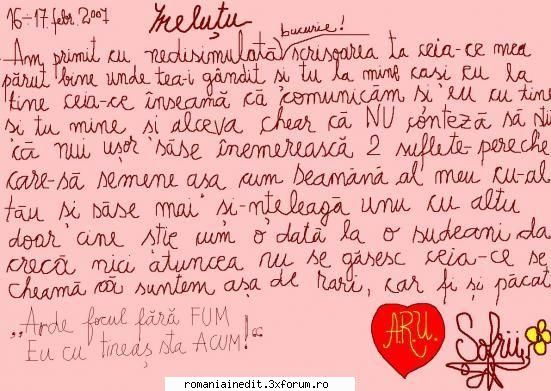 16-17. febr. 2007 Irelușu
bucurie!
Am primit cu nedisimulată scrisoarea ta ceia-ce mea
părut bine unde tea-i gândit si tu la mine casi eu la
tine ceia-ce înseamă că comunicăm si eu cu tine
si tu mine și alceva chear că NU contează să sti
că nui ușor săse înemerească 2 suflete-pereche
care-să semene asa cum seamănă al meu cu-al
tău si săse mai si-nțeleagă unu cu altu
doar cine știe cum o dată la o sudeani da
crecă nici atuncea nu se găsesc ceia-ce se
cheamă că suntem așa de rari, car fi și păcat
„Arde focul fără FUM
Eu cu tineaș sta ACUM!“
A.R.U.
Sofrii
romaniainedit.3xforum.ro